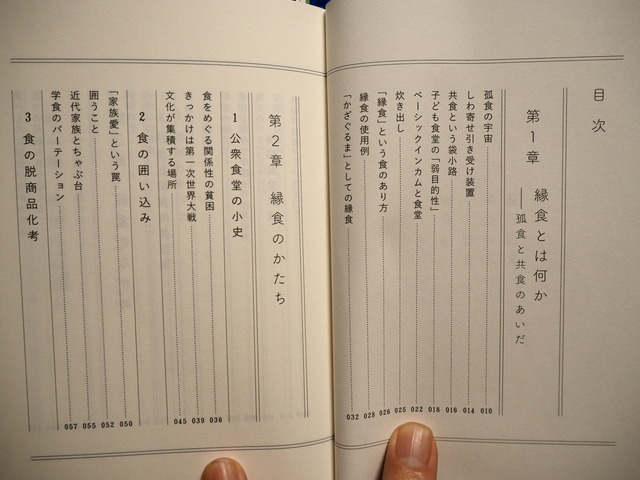 目次
第1章 縁食とは何か
――孤食と共食のあいだ
孤食の宇宙 010
しわ寄せ引き受け装置 014
共食という袋小路 016
子ども食堂の「弱目的性」 018
ベーシックインカムと食堂 022
炊き出し 025
「縁食」という食のあり方 026
縁食の使用例 028
「かざぐるま」としての縁食 032
第2章 縁食のかたち
1 公衆食堂の小史
食をめぐる関係性の貧困 036
きっかけは第一次世界大戦 039
文化が集積する場所 045
2 食の囲い込み
「家族愛」という罠 050
囲うこと 052
近代家族とちゃぶ台 055
学食のパーテーション 057
3 食の脱商品化考